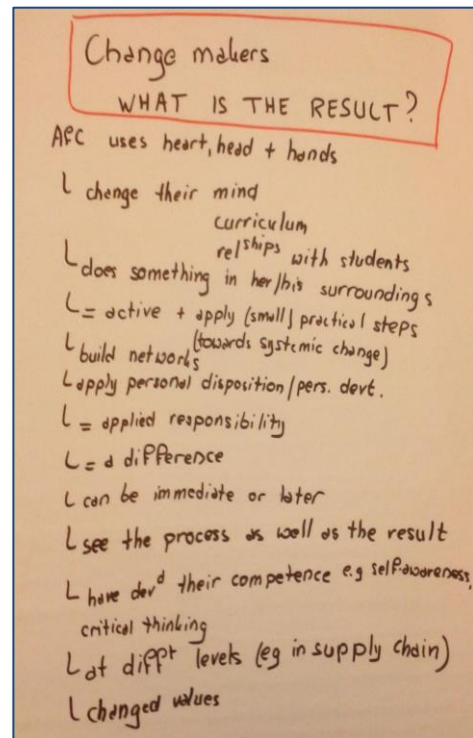 Change makers
WHAT IS THE RESULT?
AFC uses heart, head + hands
L change their mind
curriculum
rel^ships with students
L does something in her/his surroundings
L = active + apply (small) practical steps
(towards systemic change)
L build networks
L apply personal disposition/pers. devt.
L = applied responsibility
L = a difference
L can be immediate or later
L see the process as well as the result
L have dev^d their competence e.g self-awareness,
critical thinking
L at diff^t levels (eg in supply chain)
L changed values